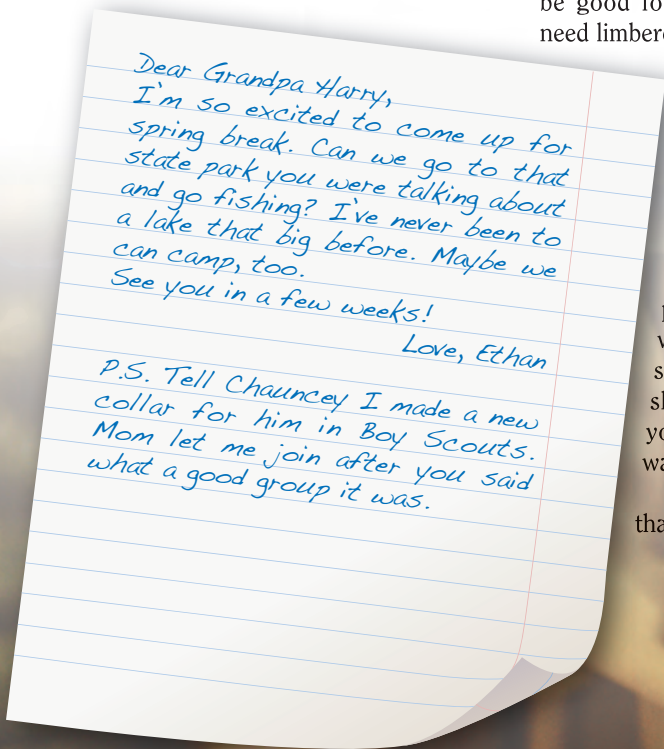 be good fo
need limber
Dear Grandpa Harry,
I'm so excited to come up for
spring break. Can we go to that
state park you were talking about
and go fishing? I've never been to
a lake that big before. Maybe we
can camp, too.
See you in a few weeks!
Love, Ethan
P.S. Tell Chauncey I made a new
collar for him in Boy Scouts.
Mom let me join after you said
what a good group it was.
yo
wa
tha